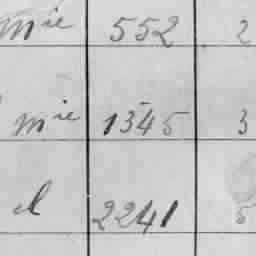 Mie 552 2
mie 1345 3
el 2241 5